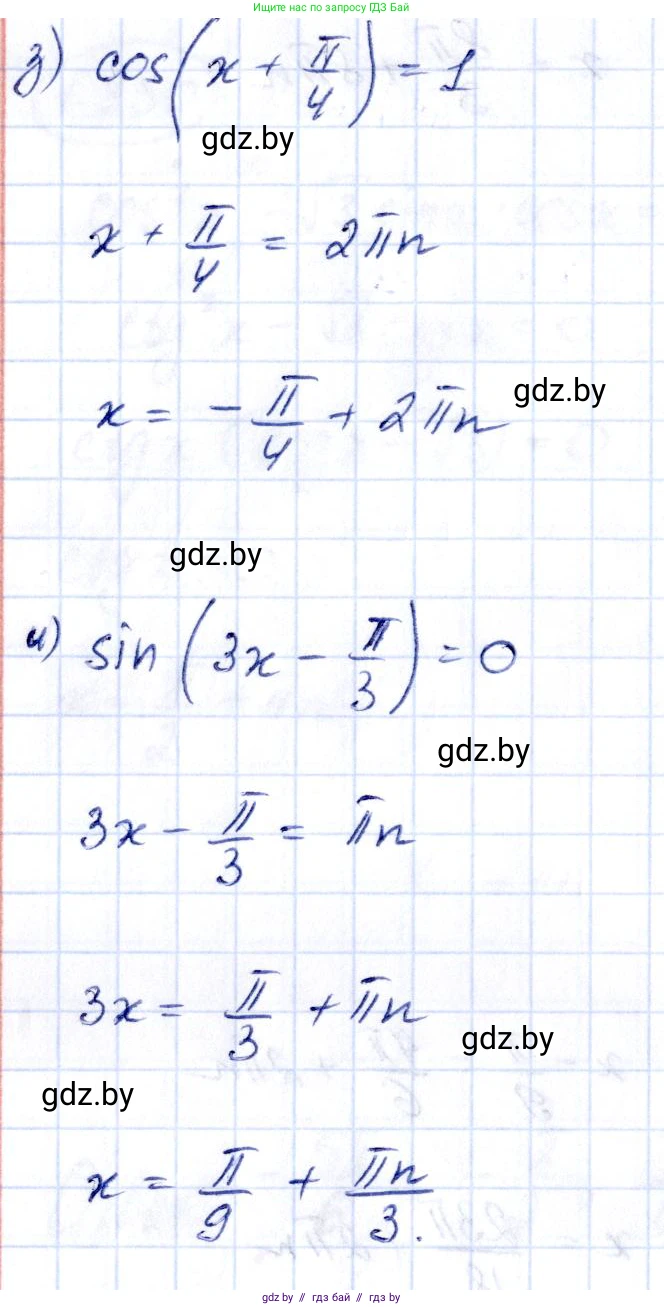 Ищите нас по запросу ГДЗ Бай
з) cos(x + π/4) = 1
gdz.by
x + π/4 = 2πn
gdz.by
x = -π/4 + 2πn
gdz.by
и) sin(3x - π/3) = 0
gdz.by
3x - π/3 = πn
3x = π/3 + πn
gdz.by
gdz.by
x = π/9 + πn/3.
gdz.by // гдз бай // гдз by